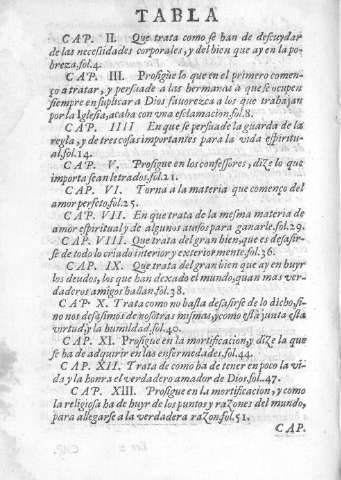 TABLA
CAP. II. Que trata como se han de descuydar
de las necessidades corporales, y del bien que ay en la po-
breza.fol.4.
CAP. III. Prosigue lo que en el primero comen-
ço a tratar, y persuade a las hermanas à que se ocupen
siempre en suplicar a Dios fauorezca a los que trabajan
por la Iglesia, acaba con vna esclamacion.fol.8.
CAP. IIII En que se persuade la guarda de la
regla, y de tres cosas importantes para la vida espiritu-
al.fol.14.
CAP. V. Prosigue en los confessores, dize lo que
importa sean letrados.fol.21.
CAP. VI. Torna a la materia que començo del
amor perfeto.fol.25.
CAP. VII. En que trata de la mesma materia de
amor espiritual y de algunos auisos para ganarle.fol.29.
CAP. VIII. Que trata del gran bien, que es desasir-
se de todo lo criado interior y exteriormente.fol.36.
CAP. IX. Que trata del gran bien que ay en huyr
los deudos, los que han dexado el mundo, quan mas ver-
daderos amigos hallan.fol.38.
CAP. X. Trata como no basta desasirse de lo dicho, si-
no nos desasimos de nosotras mismas, y como està junta esta
virtud, y la humildad.fol.40.
CAP. XI. Prosigue en la mortificacion, y dize la que
se ha de adquirir en las enfermedades.fol.44.
CAP. XII. Trata de como ha de tener en poco la vi-
da y la honra el verdadero amador de Dios.fol..47.
CAP. XIII. Prosigue en la mortificacion, y como
la religiosa ha de huyr de los puntos y razones del mundo,
para allegarse a la verdadera razon.fol.51.
CAP.